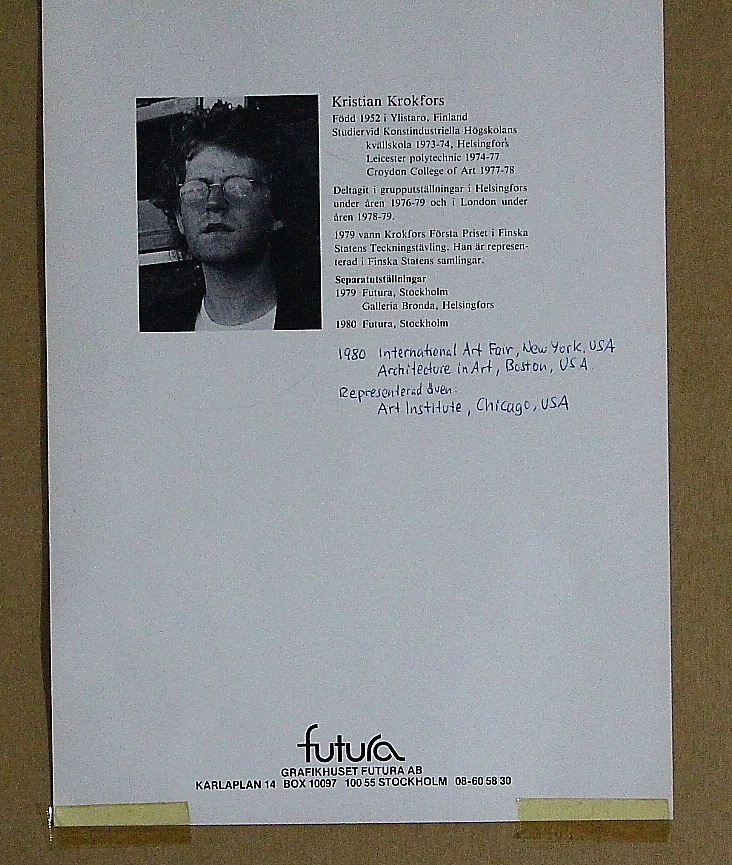 Kristian Krokfors
Född 1952 i Ylistaro, Finland
Studier vid Konstindustriella Högskolans
kvällskola 1973-74, Helsingfors
Leicester polytechnic 1974-77
Croydon College of Art 1977-78
Deltagit i grupputställningar i Helsingfors
under åren 1976-79 och i London under
åren 1978-79.
1979 vann Krokfors Första Priset i Finska
Statens Teckningstävling. Han är represen-
terad i Finska Statens samlingar.
Separatutställningar
1979 Futura, Stockholm
Galleria Bronda, Helsingfors
1980 Futura, Stockholm
1980 International Art Fair, New York, USA
Architecture in Art, Boston, USA
Representerad även:
Art Institute, Chicago, USA
futura
GRAFIKHUSET FUTURA AB
KARLAPLAN 14 BOX 10097 100 55 STOCKHOLM 08-60 58 30